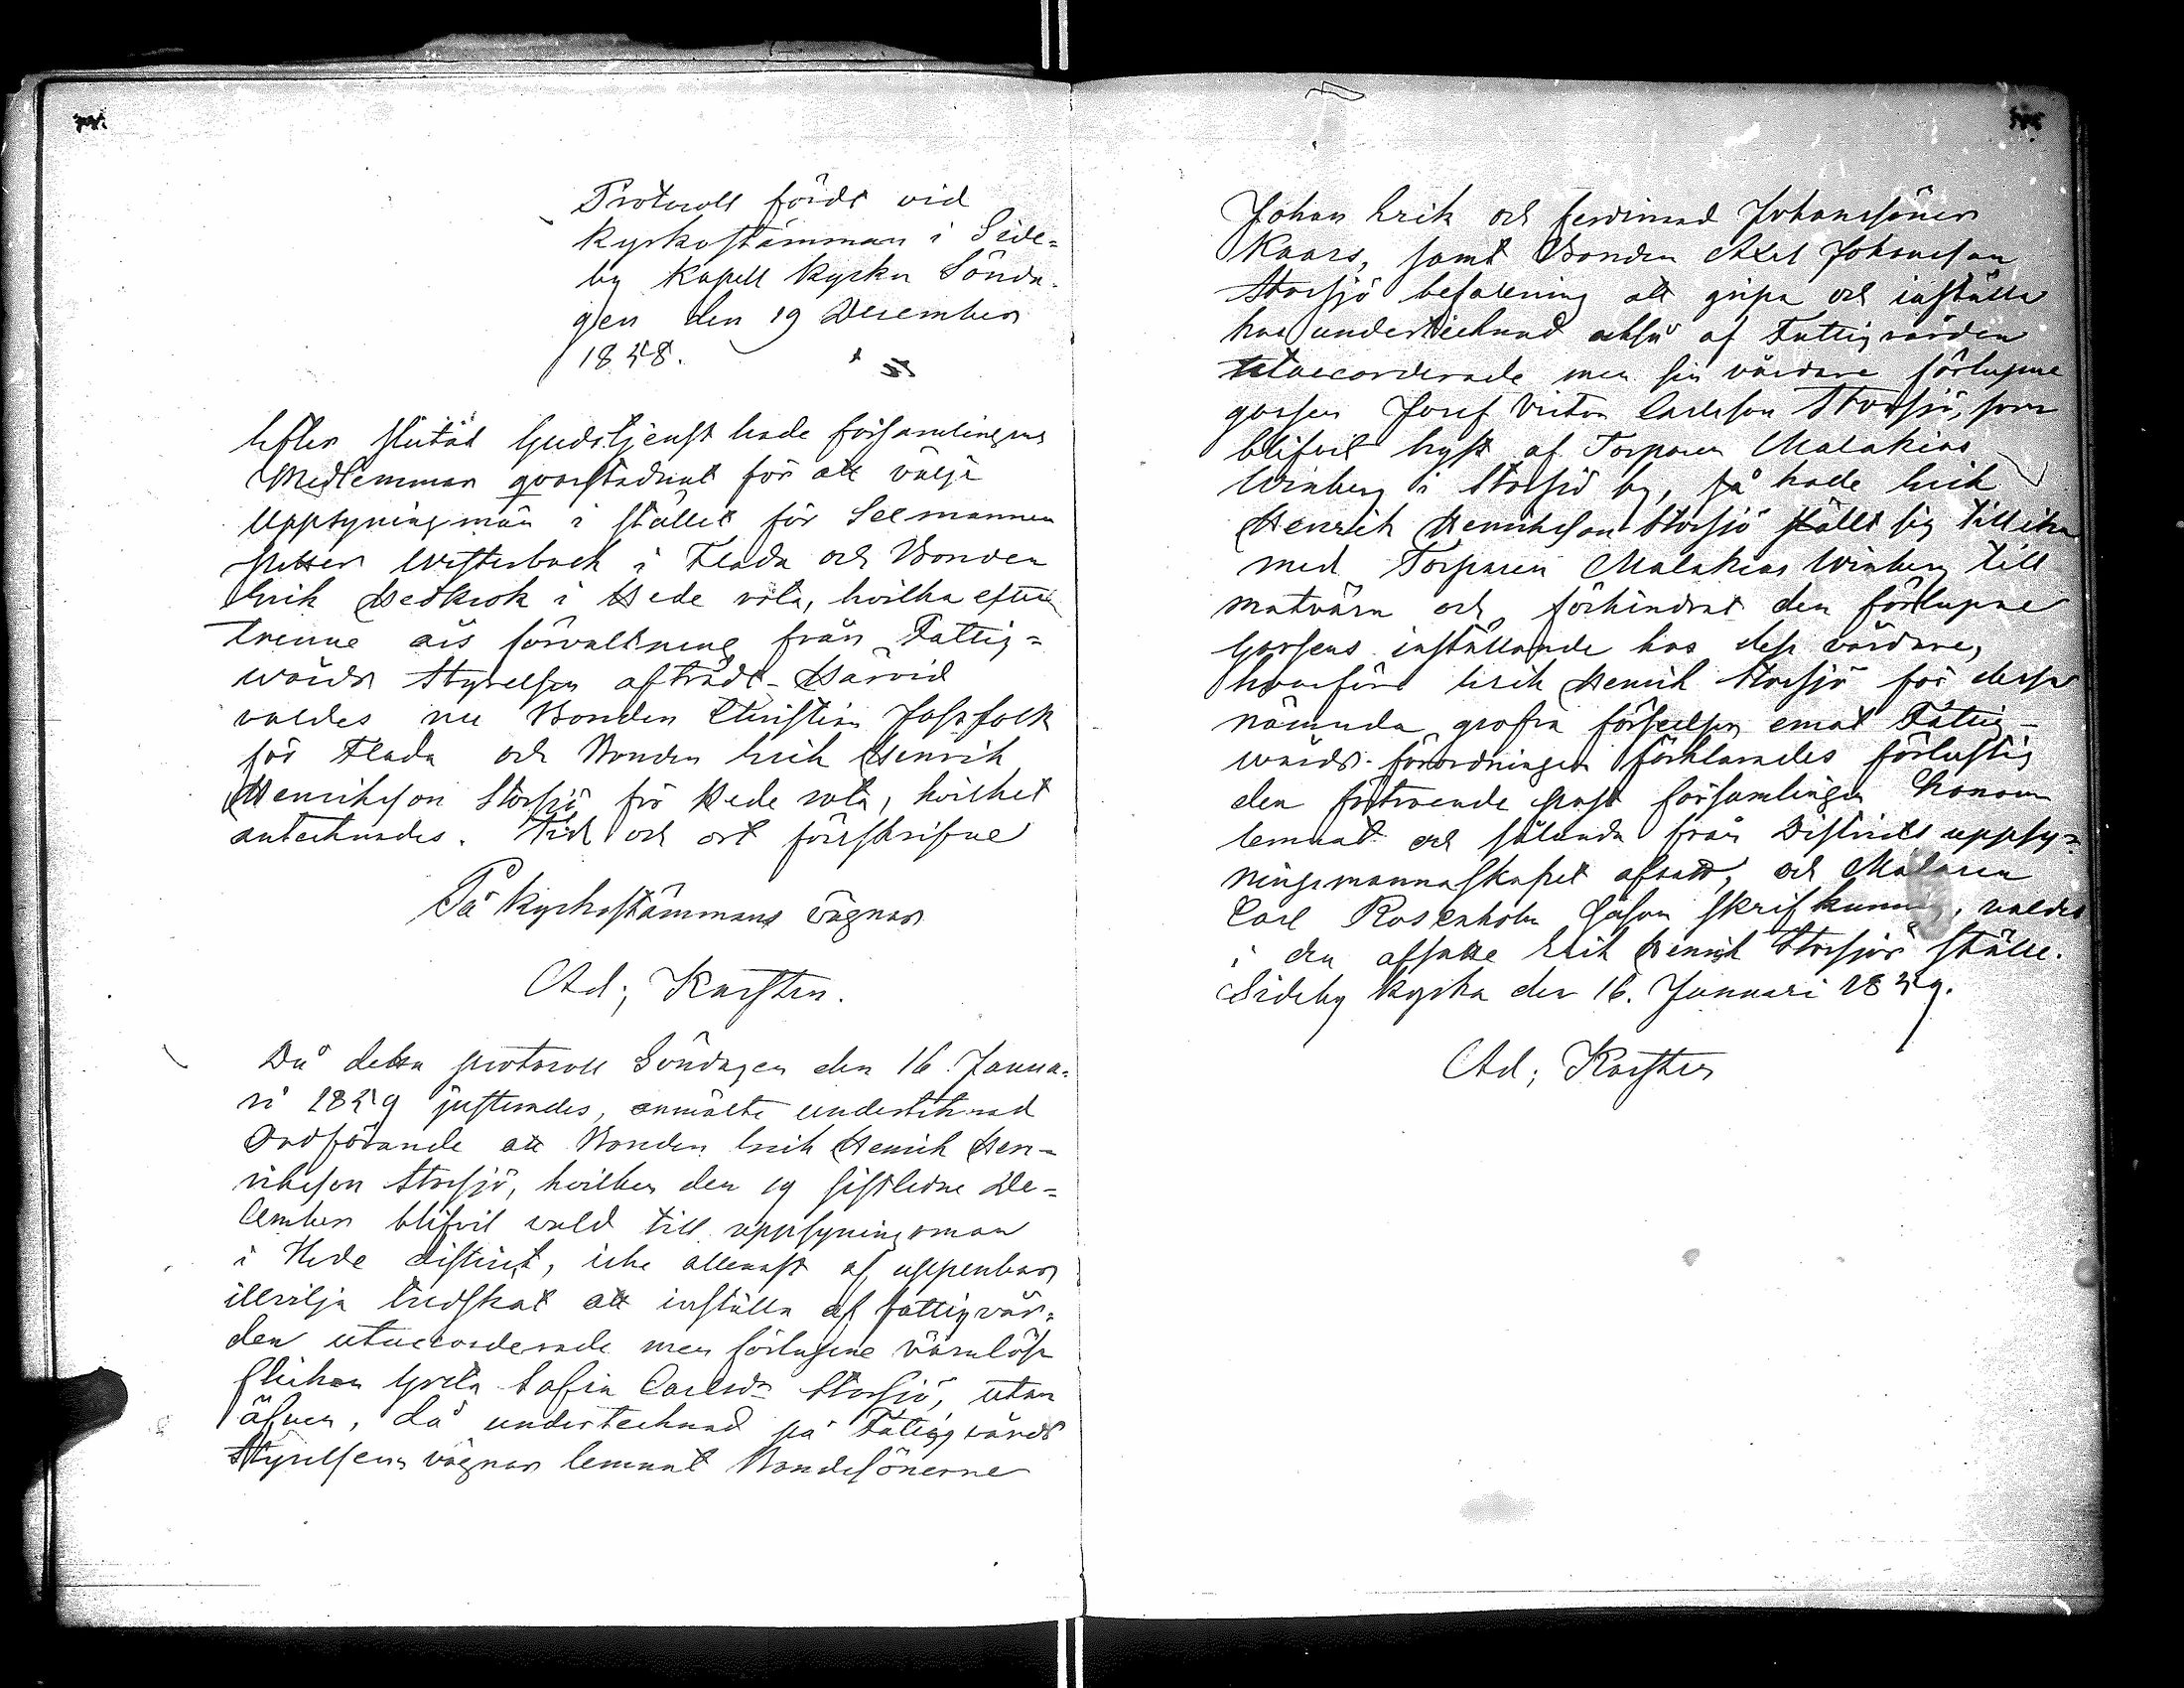 Protocoll fördt vid
kyrkostämman i Side=
by Kapell kyrka Sönda-
gen den 19 December
1858.
Efter slutad Gudstjenst hade församlingens
Medlemmar qvarstadnat för att välja
Uppsyningsmän i stället för Selmannen
Petter Westerback i Flada och Bonden
Erik Hedkrok i Hede rota, hvilka efter
trenne års förvaltning från Fattig=
wårds Styrelsen afträdt. Härvid
valdes nu Bonden Christian Jossfolk
för Flada och Bonden Erik Henrik
Henrikson Storsjö för Hede rota, hvilket
antecknades. Tid och ort förrskrifne
På kyrkostämmans vägnar
Ad; Karsten.
Då detta protocoll Söndagen den 16. Janua=
ri 1859 justerades, anmälte undertecknad
Ordförande att Bonden Erik Henrik Hen=
rikson Storsjö, hvilken den 19 sistledne De=
cember blifvit vald till uppsyningsman
i Hede district, icke allenast af uppenbar
illvilja tredskat att inställa af fattigvår=
den utaccorderade men förlupne värnlösa
flickan Greta Sofia Carlsdr Storsjö, utan
äfven, då undertecknad på Fattigvårds
Styrelsens vägnar lemnat Bondesönerne
Johan Erik och Ferdinand Johanssöner
Kaars, samt Bonden Axel Johansson
Storsjö befallning att gripa och inställa
hos undertecknad äfvså af Fattigvården
utaccorderade men sin vårdare förlupne
gossen Josef Victor Carlsson Storsjö, som
blifvit hyst af Torparen Malakias
Winberg i Storsjö by, så hade Erik
Henrik Henrikson Storsjö ställt sig tillika
med Torparen Malakias Winberg till
motvärn och förhindrat den förlupne
gossens inställande hos dess vårdare,
hvarföre Erik Henrik Storsjö för dessa
nämnda grofva förseelser emot Fattig-
wårds-förordningen förklarades förlustig
den förtroende post församlingen honom
lemnat och sålunda från Districts uppsy=
ningsmannaskapet afsatt, och Målaren
Carl Rosenholm såsom skrifkunnig, valdes
i den afsatte Erik Henrik Storsjös ställe.
Sideby kyrka den 16. Januari 1859.
Ad; Karsten